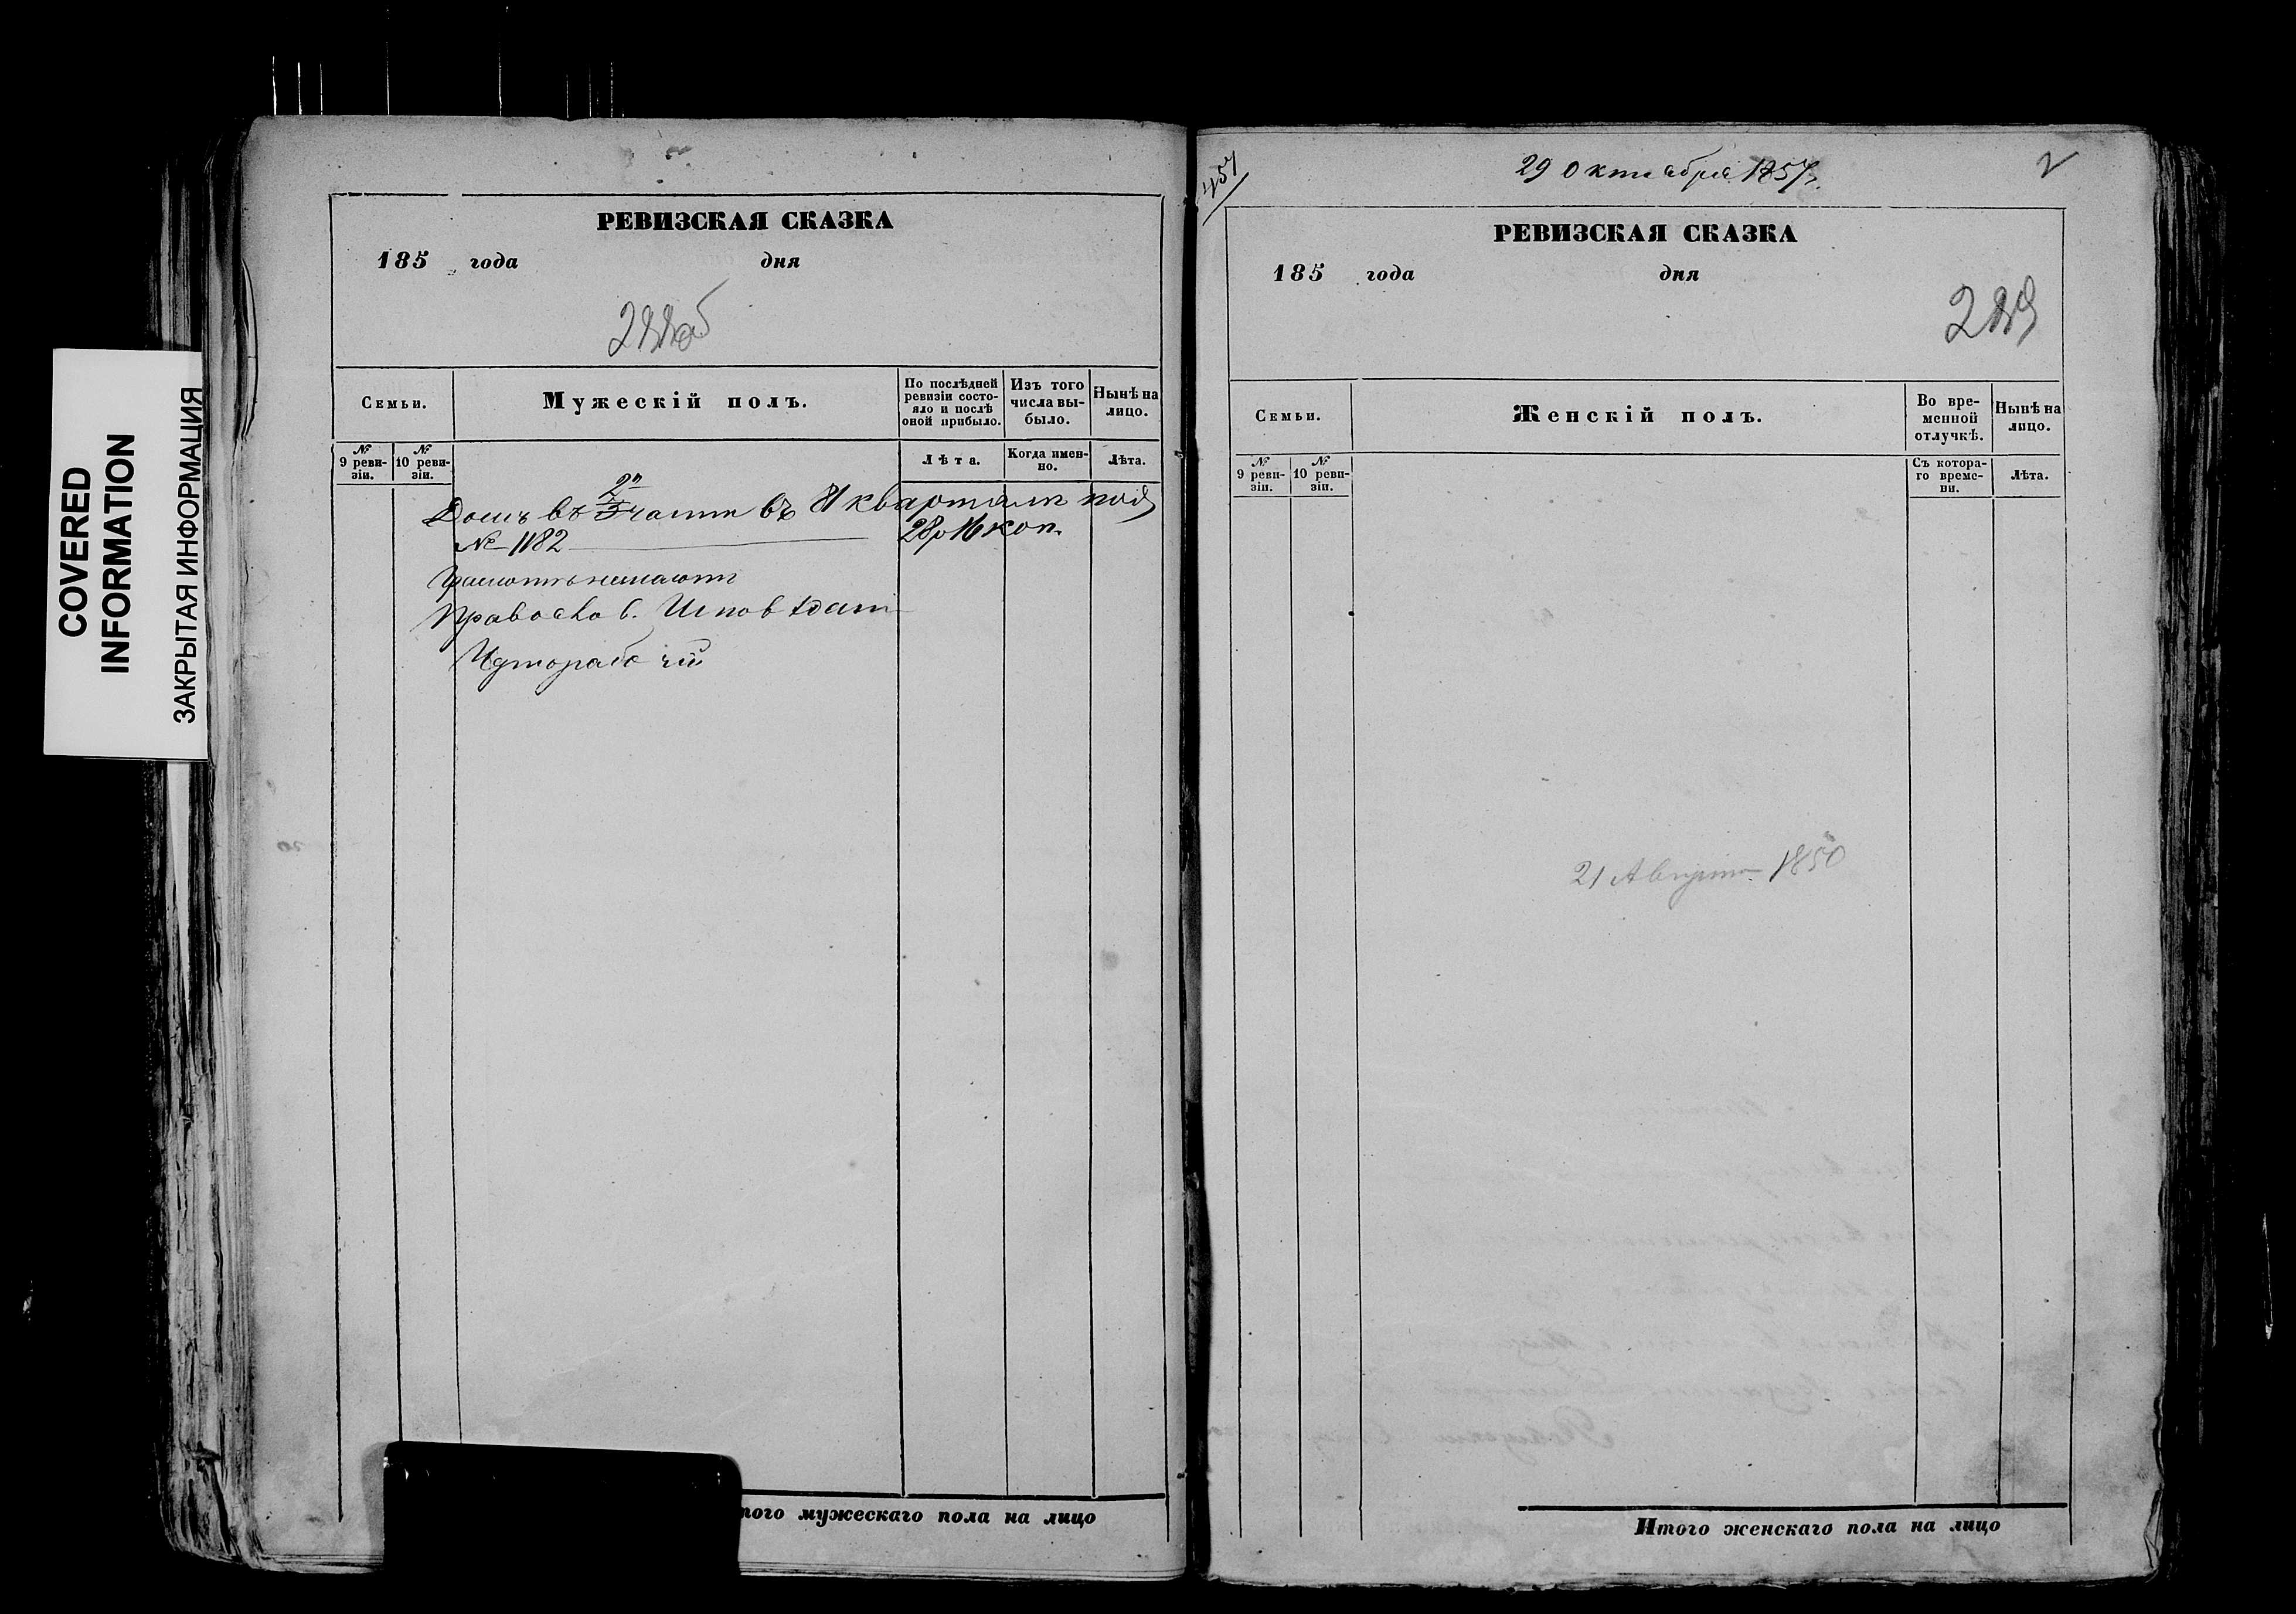 COVERED
INFORMATION
ЗАКРЫТАЯ ИНФОРМАЦИЯ
РЕВИЗСКАЯ СКАЗКА
185 года дня
288об
Семьи.
Мужескій полъ.
По послѣдней ревизіи состояло и послѣ оной прибыло.
Изъ того числа выбыло.
Нынѣ на лицо.
№ 9 ревизіи.
№ 10 ревизіи.
Лѣта.
Когда именно.
Лѣта.
2й
Домъ въ 3 части въ 81 кварталѣ под
№ 1182 28 р 16 коп.
Грамотѣ незнаютъ
Православ. Исповѣдан
Чернорабочій
того мужескаго пола на лицо
457
29 Октября 1857 г.
2
РЕВИЗСКАЯ СКАЗКА
185 года дня
289
Семьи.
Женскій полъ.
Во временной отлучкѣ.
Нынѣ на лицо.
№ 9 ревизіи.
№ 10 ревизіи.
Съ котораго времени.
Лѣта.
21 Августа 1850
Итого женскаго пола на лицо